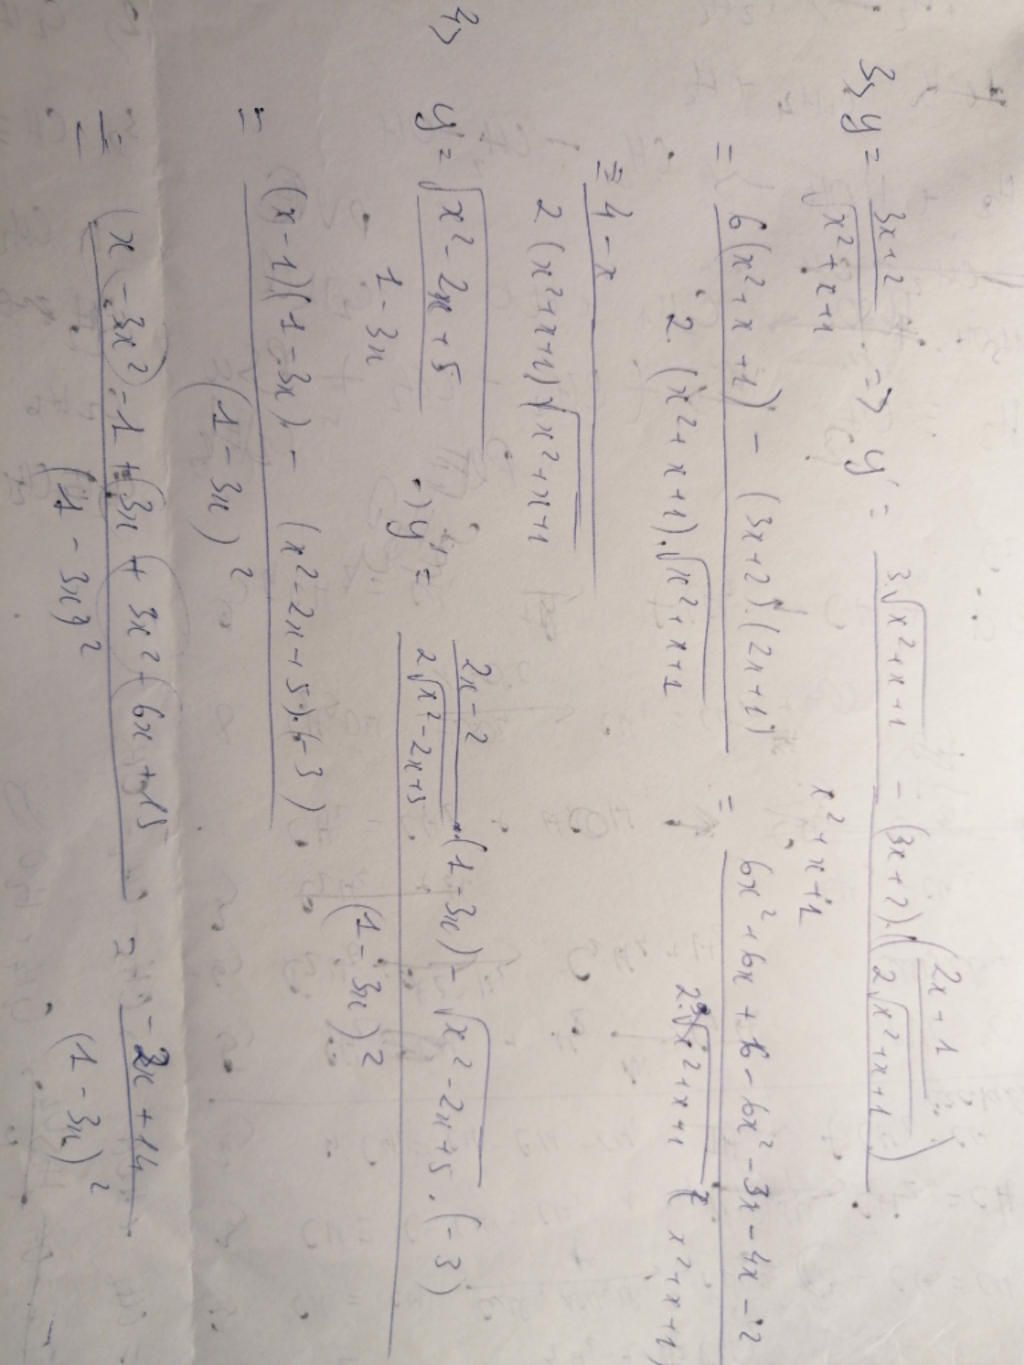 3) y = (3x+2)/√(x²+x+1) => y' = (3.√(x²+x+1) - (3x+2).((2x+1)/(2√(x²+x+1))))/(x²+x+1)
= (6(x²+x+1) - (3x+2).(2x+1))/(2.(x²+x+1).√(x²+x+1)) = (6x²+6x+6-6x²-3x-4x-2)/(2.√(x²+x+1) (x²+x+1))
= (4-x)/(2(x²+x+1)√(x²+x+1))
4) y = √(x²-2x+5)/(1-3x) => y' = ((2x-2)/(2√(x²-2x+5)).(1-3x) - √(x²-2x+5).(-3))/(1-3x)²
= ((x-1)(1-3x) - (x²-2x+5).(-3))/(1-3x)²
= (x-3x²-1+3x+3x²+6x+15)/(1-3x)² = (-2x+14)/(1-3x)²